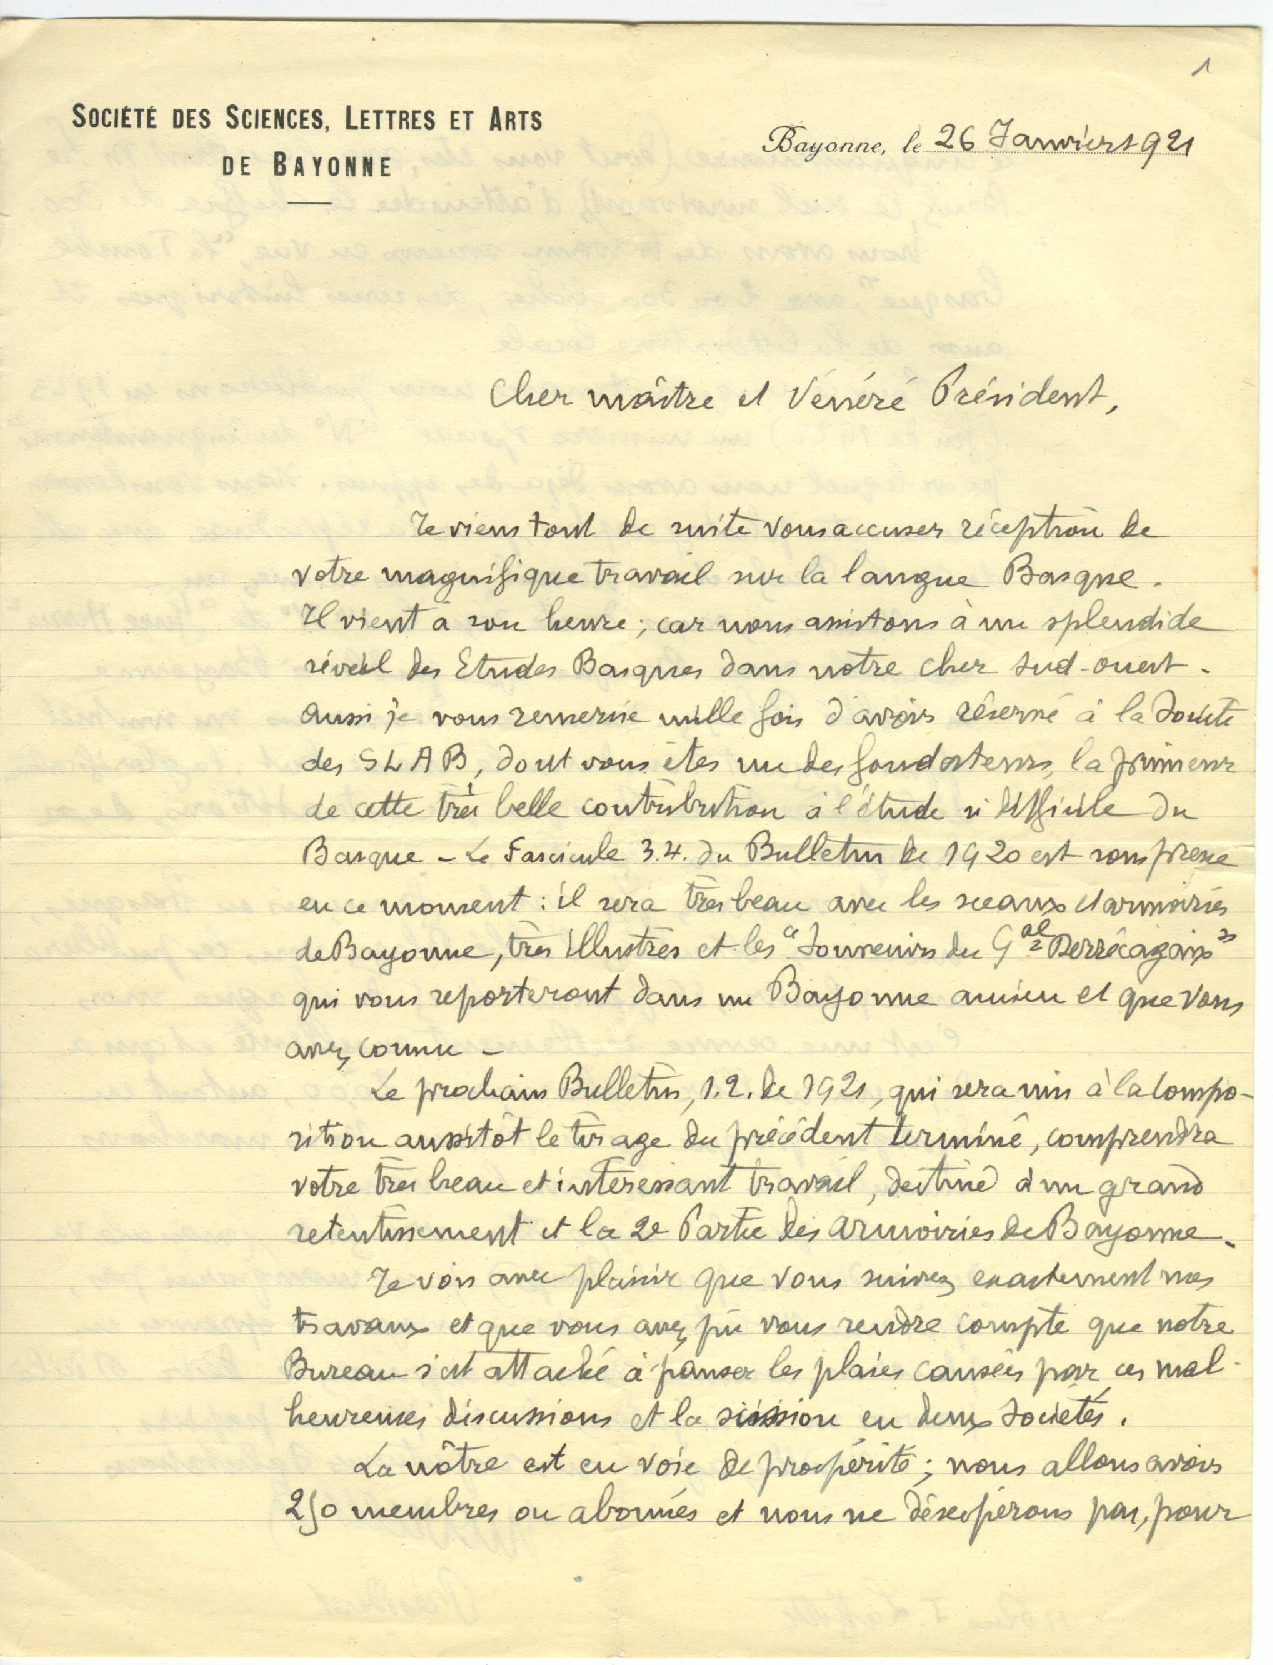 1
SOCIÉTÉ DES SCIENCES, LETTRES ET ARTS
DE BAYONNE
Bayonne, le 26 Janvier 1921
Cher maître et Vénéré Président,
Je viens tout de suite vous accuser réception de
votre magnifique travail sur la langue Basque.
Il vient à son heure ; car nous assistons à un splendide
réveil des Etudes Basques dans notre cher Sud-ouest.
aussi je vous remercie mille fois d'avoir réservé à la Société
des SLAB, dont vous êtes un des fondateurs, la primeur
de cette très belle contribution à l'étude si difficile du
Basque - Le Fascicule 3.4. du Bulletin de 1920 est sous presse
en ce moment : il sera très beau avec les sceaux et armoiries
de Bayonne, très illustrés et les "Souvenirs du Gal Derrécagaix"
qui vous reporteront dans un Bayonne ancien et que vous
avez connu -
Le prochain Bulletin, 1.2. de 1921, qui sera mis à la compo-
sition aussitôt le tirage du précédent terminé, comprendra
votre très beau et intéressant travail, destiné à un grand
retentissement et la 2e Partie des armoiries de Bayonne.
Je vois avec plaisir que vous suivez exactement nos
travaux et que vous avez pu vous rendre compte que notre
Bureau s'est attaché à panser les plaies causées par ces mal-
heureuses discussions et la scission en deux Sociétés.
La nôtre est en voie de prospérité ; nous allons avoir
250 membres ou abonnés et nous ne désespérons pas, pour